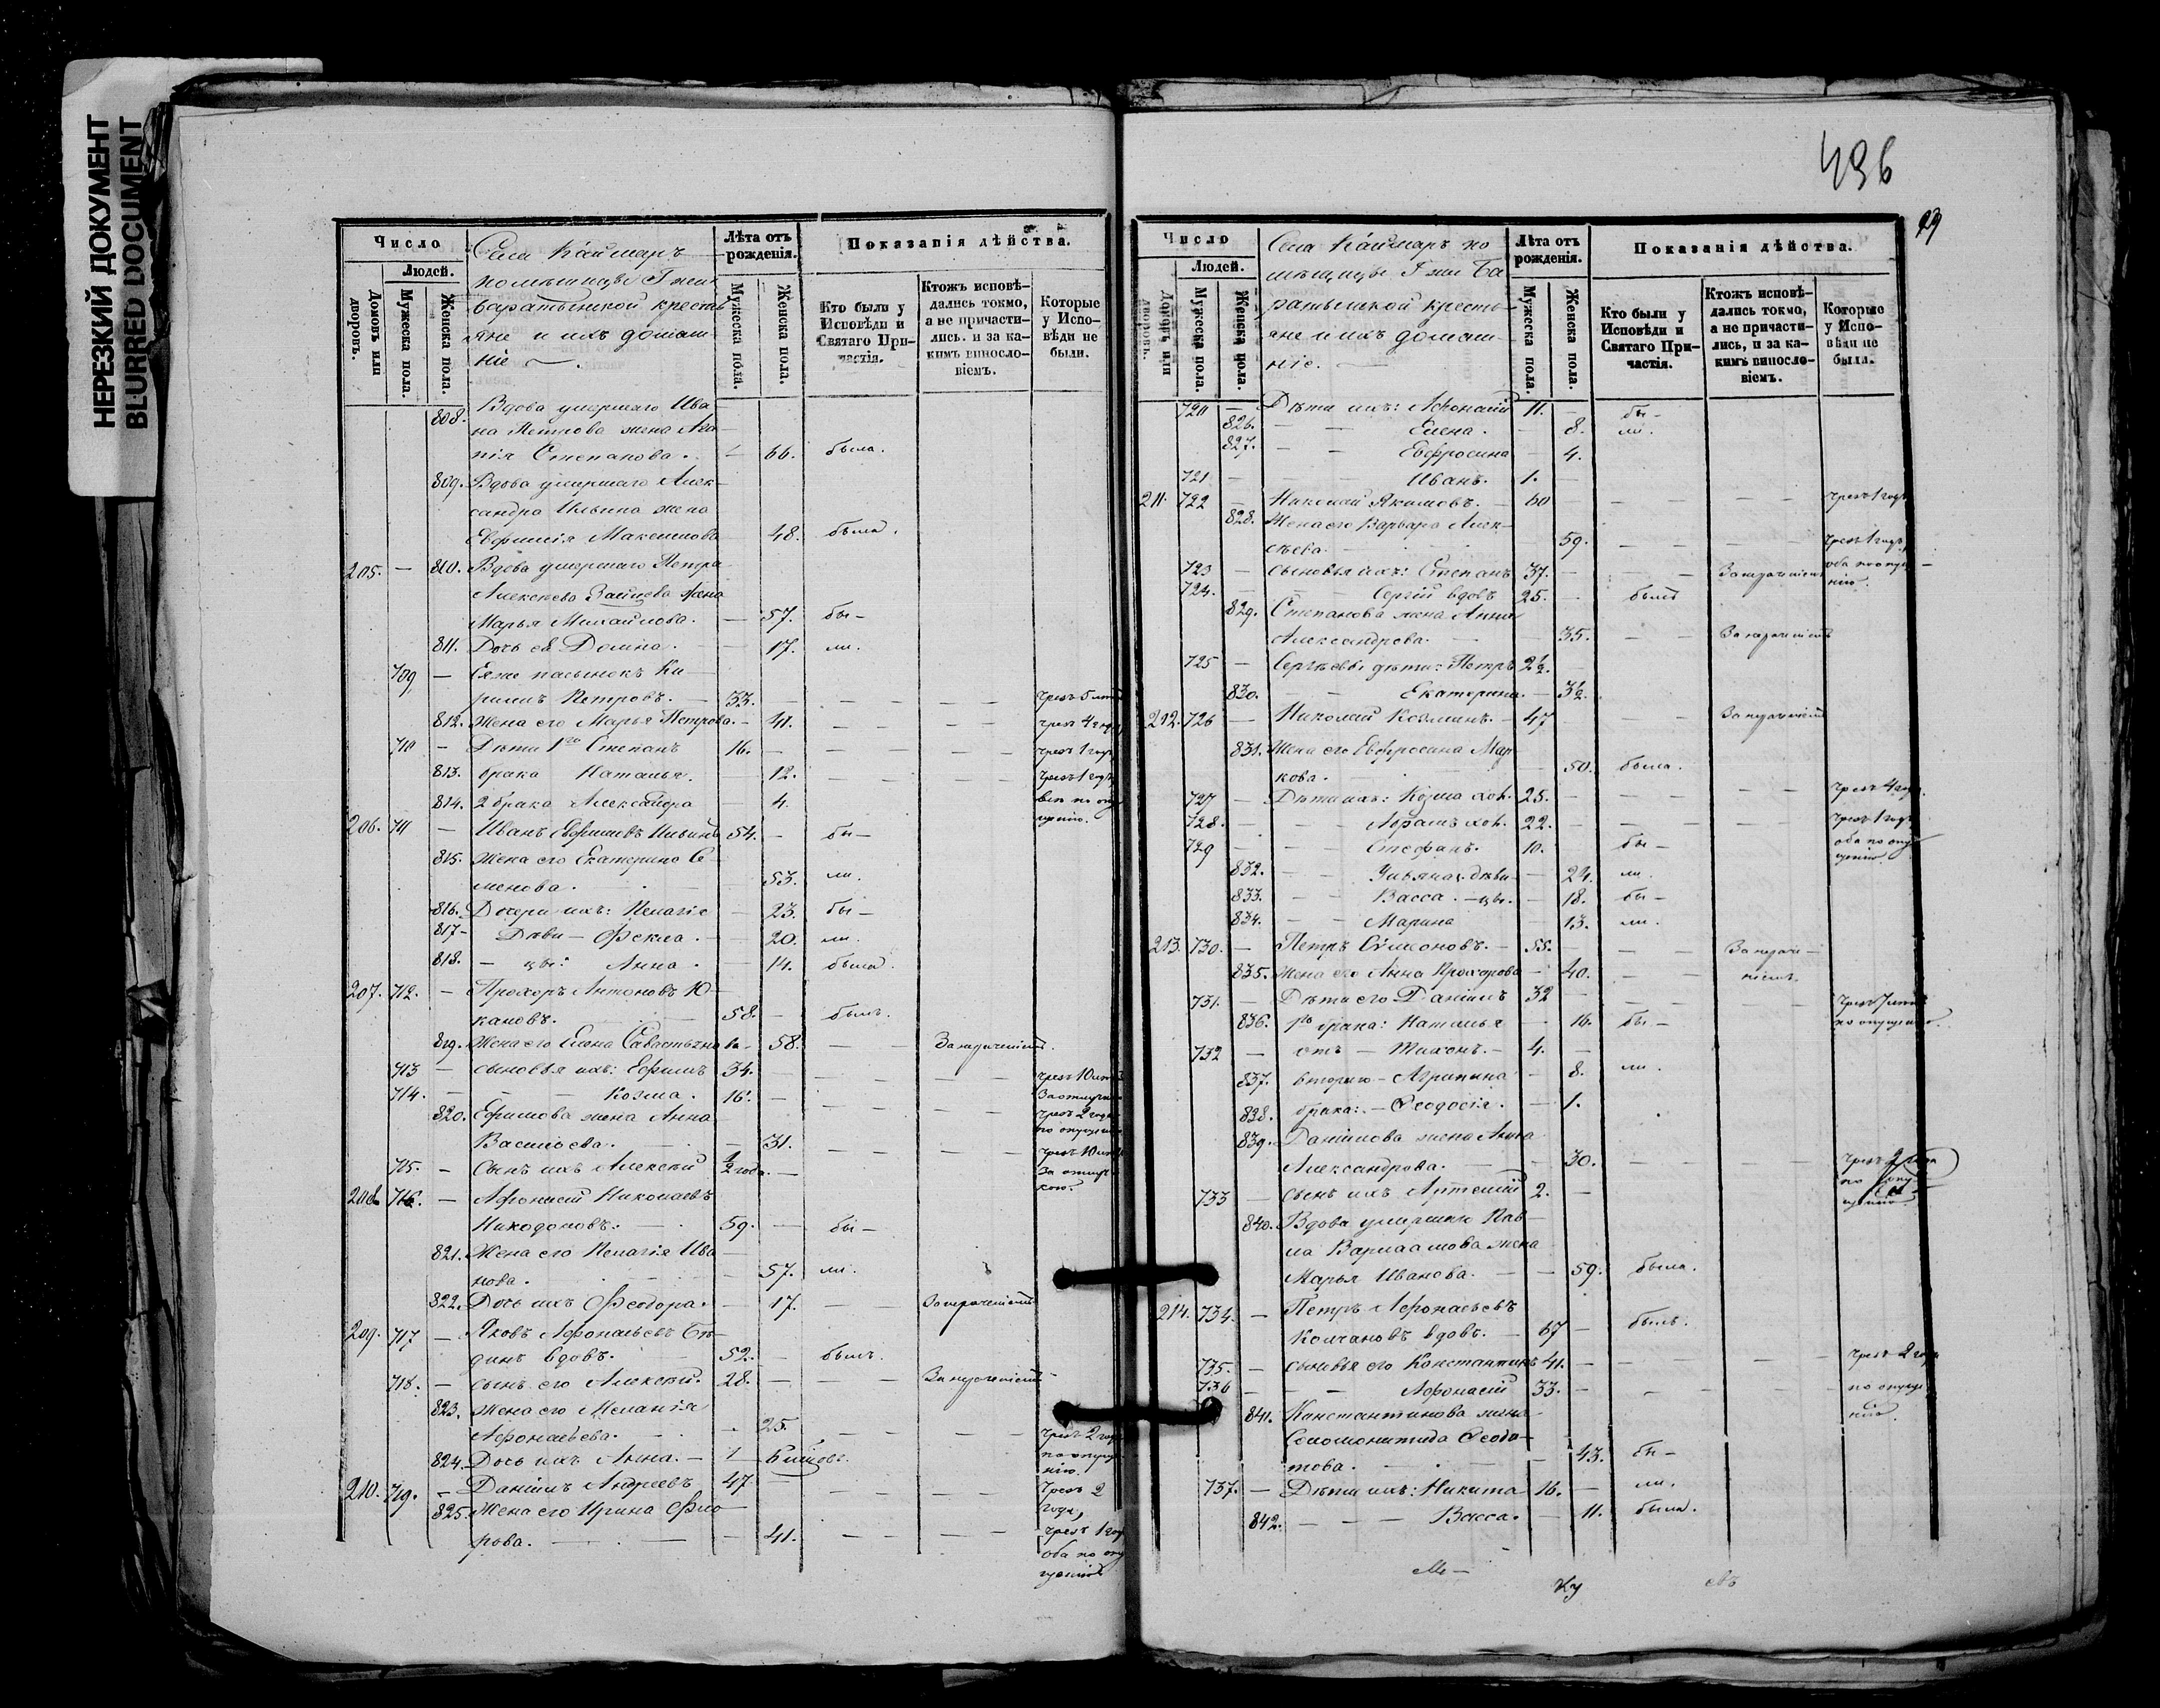 НЕРЕЗКИЙ ДОКУМЕНТ
BLURRED DOCUMENT
Число
Людей.
Домовъ или дворовъ.
Мужеска пола.
Женска пола.
Села Каймаръ
помѣщицы Г жи
Баратынской крестья
яне и ихъ домаш-
ніе
Лѣта отъ рожденія.
Мужеска пола.
Женска пола.
Показанія дѣйства.
Кто были у Исповѣди и Святаго Причастія.
Ктожъ исповѣ-дались токмо, а не причасти-лись. и за ка-кимъ винословіемъ.
Которые у Испо-вѣди не были.
808. Вдова умершаго Ива
на Петрова жена Ага
пія Степанова. — 66. была.
809. Вдова умершаго Алек-
сандра Ильина жена
Евфимія Максимова 48. была.
205. — 810. Вдова умершаго Петра
Алексѣева Зайцева жена
Марья Михайлова. — 57. бы-
811. Дочь ея Домна. — 17. ли.
709 — Ея же пасынокъ Ки-
рилъ Петровъ. — 33. — чрезъ 5 лѣтъ
812. Жена его Марья Петрова. — 41. — чрезъ 4 года,
710 — Дѣти 1го Степанъ 16. — чрезъ 1 годъ
813. брака Наталья. 12. — чрезъ 1 годъ
814. 2 брака Александра 4. всѣ по опу
щенію.
206. 711 — Иванъ Евфимовъ Ильинъ 54. — бы-
815. Жена его Екатерина Се-
менова. 53. ли.
816. Дочери ихъ: Пелагія — 23. бы-
817- Дѣви- Фекла. — 20. ли.
818. — цы: Анна. 14. была.
207. 712. — Прохоръ Антоновъ Ю-
кановъ. 58. — былъ.
819. Жена его Елена Савастьяно ва- 58. — За нераченіемъ.
713 — сыновья ихъ: Ефимъ 34. — чрезъ 10 лѣтъ
714. — Козма. 16. — За отлуч
820. Ефимова жена Анна чрезъ 2 года
Васильева. — 31. по опущенію
715. — Сынъ ихъ Алексѣй 2 года. — чрезъ 10 лѣтъ
за отлуч
кою.
208. 716. — Афонасій Николаевъ
Никодоновъ. — 59. — бы-
821. Жена его Пелагія Ива
нова. 57. ли.
822. Дочь ихъ Феодора. — 17. — За нераченіемъ
209. 717 — Яковъ Афонасьевъ Бѣ-
динъ вдовъ. 52. — былъ.
718. — сынъ его Алексѣй. 28. — За нераченіемъ
823. Жена его Меланія
Афонасьева. 25. — чрезъ 2 года
824. Дочь ихъ Анна. — по опуще
нію.
210. 719. — Даніилъ Андреевъ 47 чрезъ 2
года,
825. Жена его Ирина Фло
рова. — 41. — чрезъ 1 годъ
оба по опу
щенію
496
29
Число
Людей.
Домовъ или дворовъ.
Мужеска пола.
Женска пола.
Села Каймаръ по
мѣщицы Г жи Ба
ратынской кресть-
яне и ихъ домаш-
ніе. —
Лѣта отъ рожденія.
Мужеска пола.
Женска пола.
Показанія дѣйства.
Кто были у Исповѣди и Святаго При-частія.
Ктожъ исповѣ-дались токмо, а не причасти-лись, и за ка-кимъ винословіемъ.
Которые у Испо-вѣди не были.
720 — Дѣти ихъ: Афонасій 11. — бы-
826. — — Елена. — 8. ли.
827. — — Евфросинья — 4.
721 Иванъ. 1. —
211. 722 — Николай Якимовъ. — 60 — чрезъ 1 годъ
828. Жена его Варвара Алек-
сѣева. 59. — чрезъ 1 годъ,
723 — сыновья ихъ: Степанъ 37. — За нераченіемъ оба по опуще-
нію.
724. — Сергій вдовъ 25. — былъ
829. Степанова жена Анна
Александрова. — 35. — За нераченіемъ
725 — Сергѣевы дѣти: Петръ 2½. —
830. — — Екатерина. — 3½.
212. 726 — Николай Козминъ. — 47 — За нераченіемъ
831. Жена его Евфросина Мар
кова. 50. была.
727 — Дѣти ихъ: Козма хол. 25. — чрезъ 4 года.
728. — — Абрамъ хол. 22. — чрезъ 1 годъ
729 — — Стефанъ. 10. бы- оба по опу
щенію.
832. — — Ульяна дѣви- — 24. ли.
833. — — Васса. — цы. — 18. бы-
834. — — Марина 13. ли.
213. 730. — Петръ Симеоновъ. — 55. — За нераче-
835. Жена его Анна Прохорова — 40. — ніемъ.
731. — Дѣти его Даніилъ 32 — чрезъ 7 лѣтъ
836. 1го брака: Наталья — 16. бы- по опущенію.
732 — отъ — Тихонъ. — 4. —
837. втораго — Агрипина — 8. ли.
838. брака: — Феодосія. — 1.
839. Даніилова жена Анна
Александрова. — 30. — чрезъ 2 года
по опу
щенію.
733 — сынъ ихъ Артемій 2. —
840. Вдова умершаго Пав-
ла Варлаамова жена
Марья Иванова. — 59. была.
214. 734. — Петръ Афонасьевъ
Колчановъ вдовъ. — 67 — былъ.
735. — сыновья его Константинъ 41. — чрезъ 2 года
736 — — Афонасій 33. — по опуще
нію.
841. Константинова жена
Соломонитида Феодо-
това. — 43. бы-
737. — Дѣти ихъ: Никита 16. — ли.
842. — — — Васса. — 11. была.